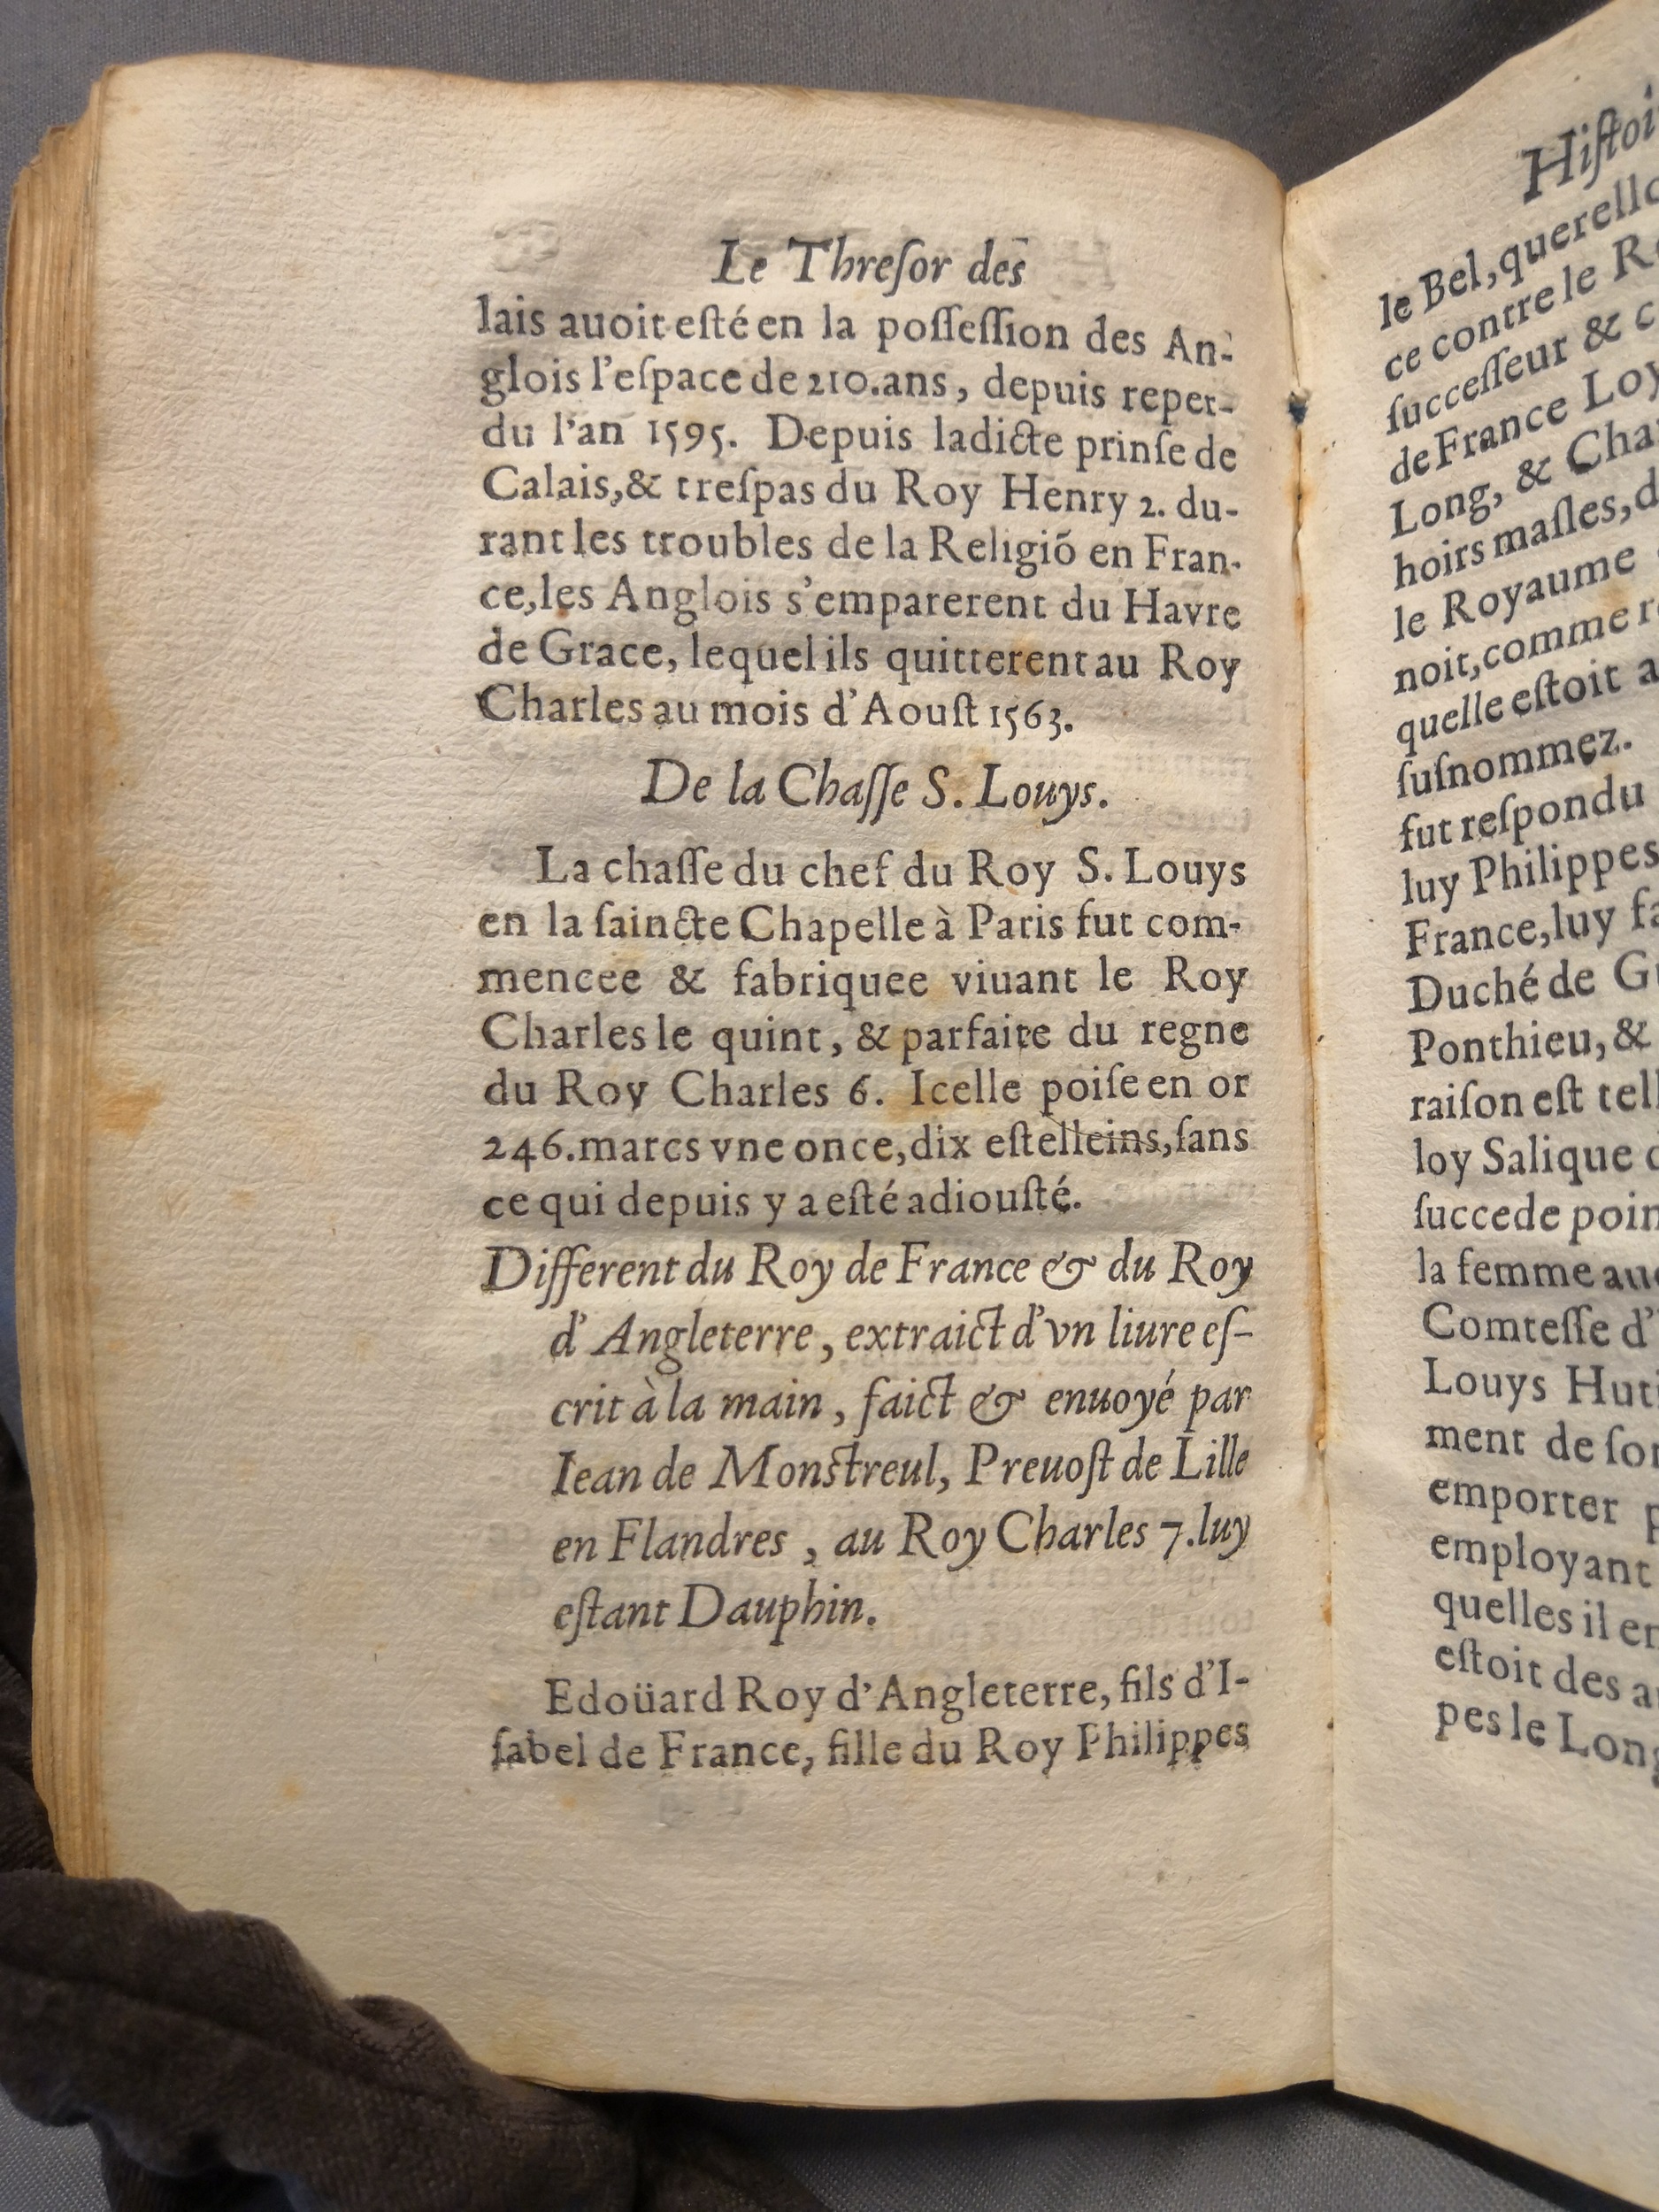 Le Threſor des
lais auoit eſté en la poſſeſſion des An-
glois l'eſpace de 210. ans, depuis reper-
du l'an 1595. Depuis ladicte prinſe de
Calais, & treſpas du Roy Henry 2. du-
rant les troubles de la Religiō en Fran-
ce, les Anglois s'emparerent du Havre
de Grace, lequel ils quitterent au Roy
Charles au mois d'Aouſt 1563.
De la Chaſſe S. Louys.
La chaſſe du chef du Roy S. Louys
en la ſaincte Chapelle à Paris fut com-
mencee & fabriquee viuant le Roy
Charles le quint, & parfaite du regne
du Roy Charles 6. Icelle poiſe en or
246. marcs vne once, dix eſtelleins, ſans
ce qui depuis y a eſté adiouſté.
Different du Roy de France & du Roy
d'Angleterre, extraict d'vn liure eſ-
crit à la main, faict & enuoyé par
Iean de Monſtreul, Preuoſt de Lille
en Flandres, au Roy Charles 7. luy
eſtant Dauphin.
Edoüard Roy d'Angleterre, fils d'I-
ſabel de France, fille du Roy Philippes
le Bel, querell
ce contre le R
ſucceſſeur & c
de France Loy
Long, & Cha
hoirs maſles, d
le Royaume
noit, comme r
quelle eſtoit a
ſuſnommez.
fut reſpondu
luy Philippes
France, luy fa
Duché de G
Ponthieu, &
raiſon eſt tell
loy Salique
ſuccede poin
la femme au
Comteſſe d'
Louys Huti
ment de ſon
emporter p
employant
quelles il en
eſtoit des a
pes le Long